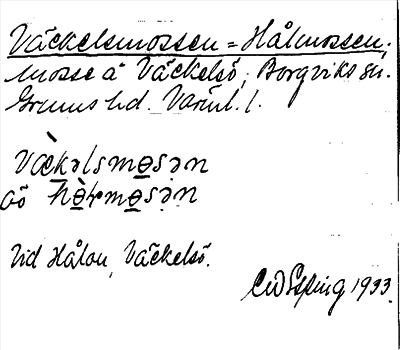 Väckelsmossen = Hålmossen;
mosse å Väckelsö, Borgviks sn.
Grums hd. Värml. l.
væ̀kəlsmɵsən
oö hɵ̀ɽmɵsən
Vid Hålan, Väckelsö.
CWEsping 1933.